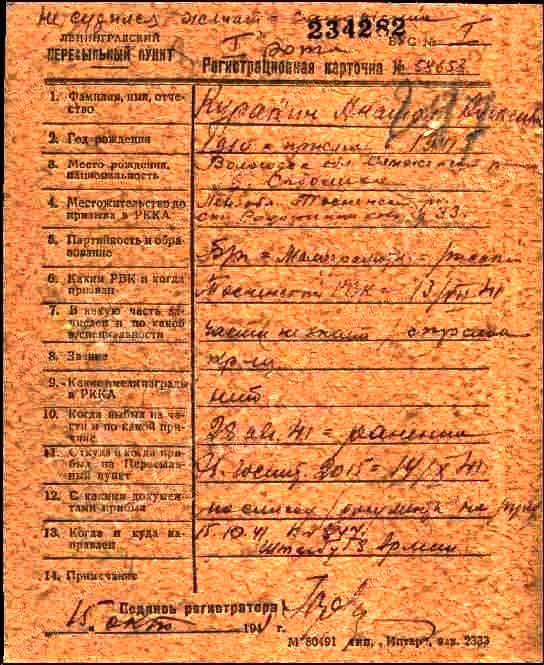 Не судился женат =
234282
ЛЕНИНГРАДСКИЙ
ПЕРЕСЫЛЬНЫЙ ПУНКТ
I рота
БУС № I
Регистрационная карточка № 58653
1. Фамилия, имя, отчество
Куракин
2. Год рождения
1910 =
3. Место рождения, национальность
Вологодск обл
4. Местожительство до призыва в РККА
Лен. обл. Тосненск
33.
5. Партийность и образование
Бр = Малограмотн =
6. Каким РВК и когда призван
Тосненский РВК = 13/VII 41
7. В какую часть зачислен и по какой в/специальности
части не знает, стрелком
8. Звание
кр-ц
9. Какие имел награды в РККА
нет
10. Когда выбыл из части и по какой причине
28 ав. 41 = ранение
11. Откуда и когда прибыл на Пересыльный пункт
Эв. госпит. 2015 = 14/X 41
12. С какими документами прибыл
по списку
13. Когда и куда направлен
15.10.41
Армии
14. Примечание
Подпись регистратора
15 окт 1941 г.
М 50491 тип. „Интер", зак. 2333